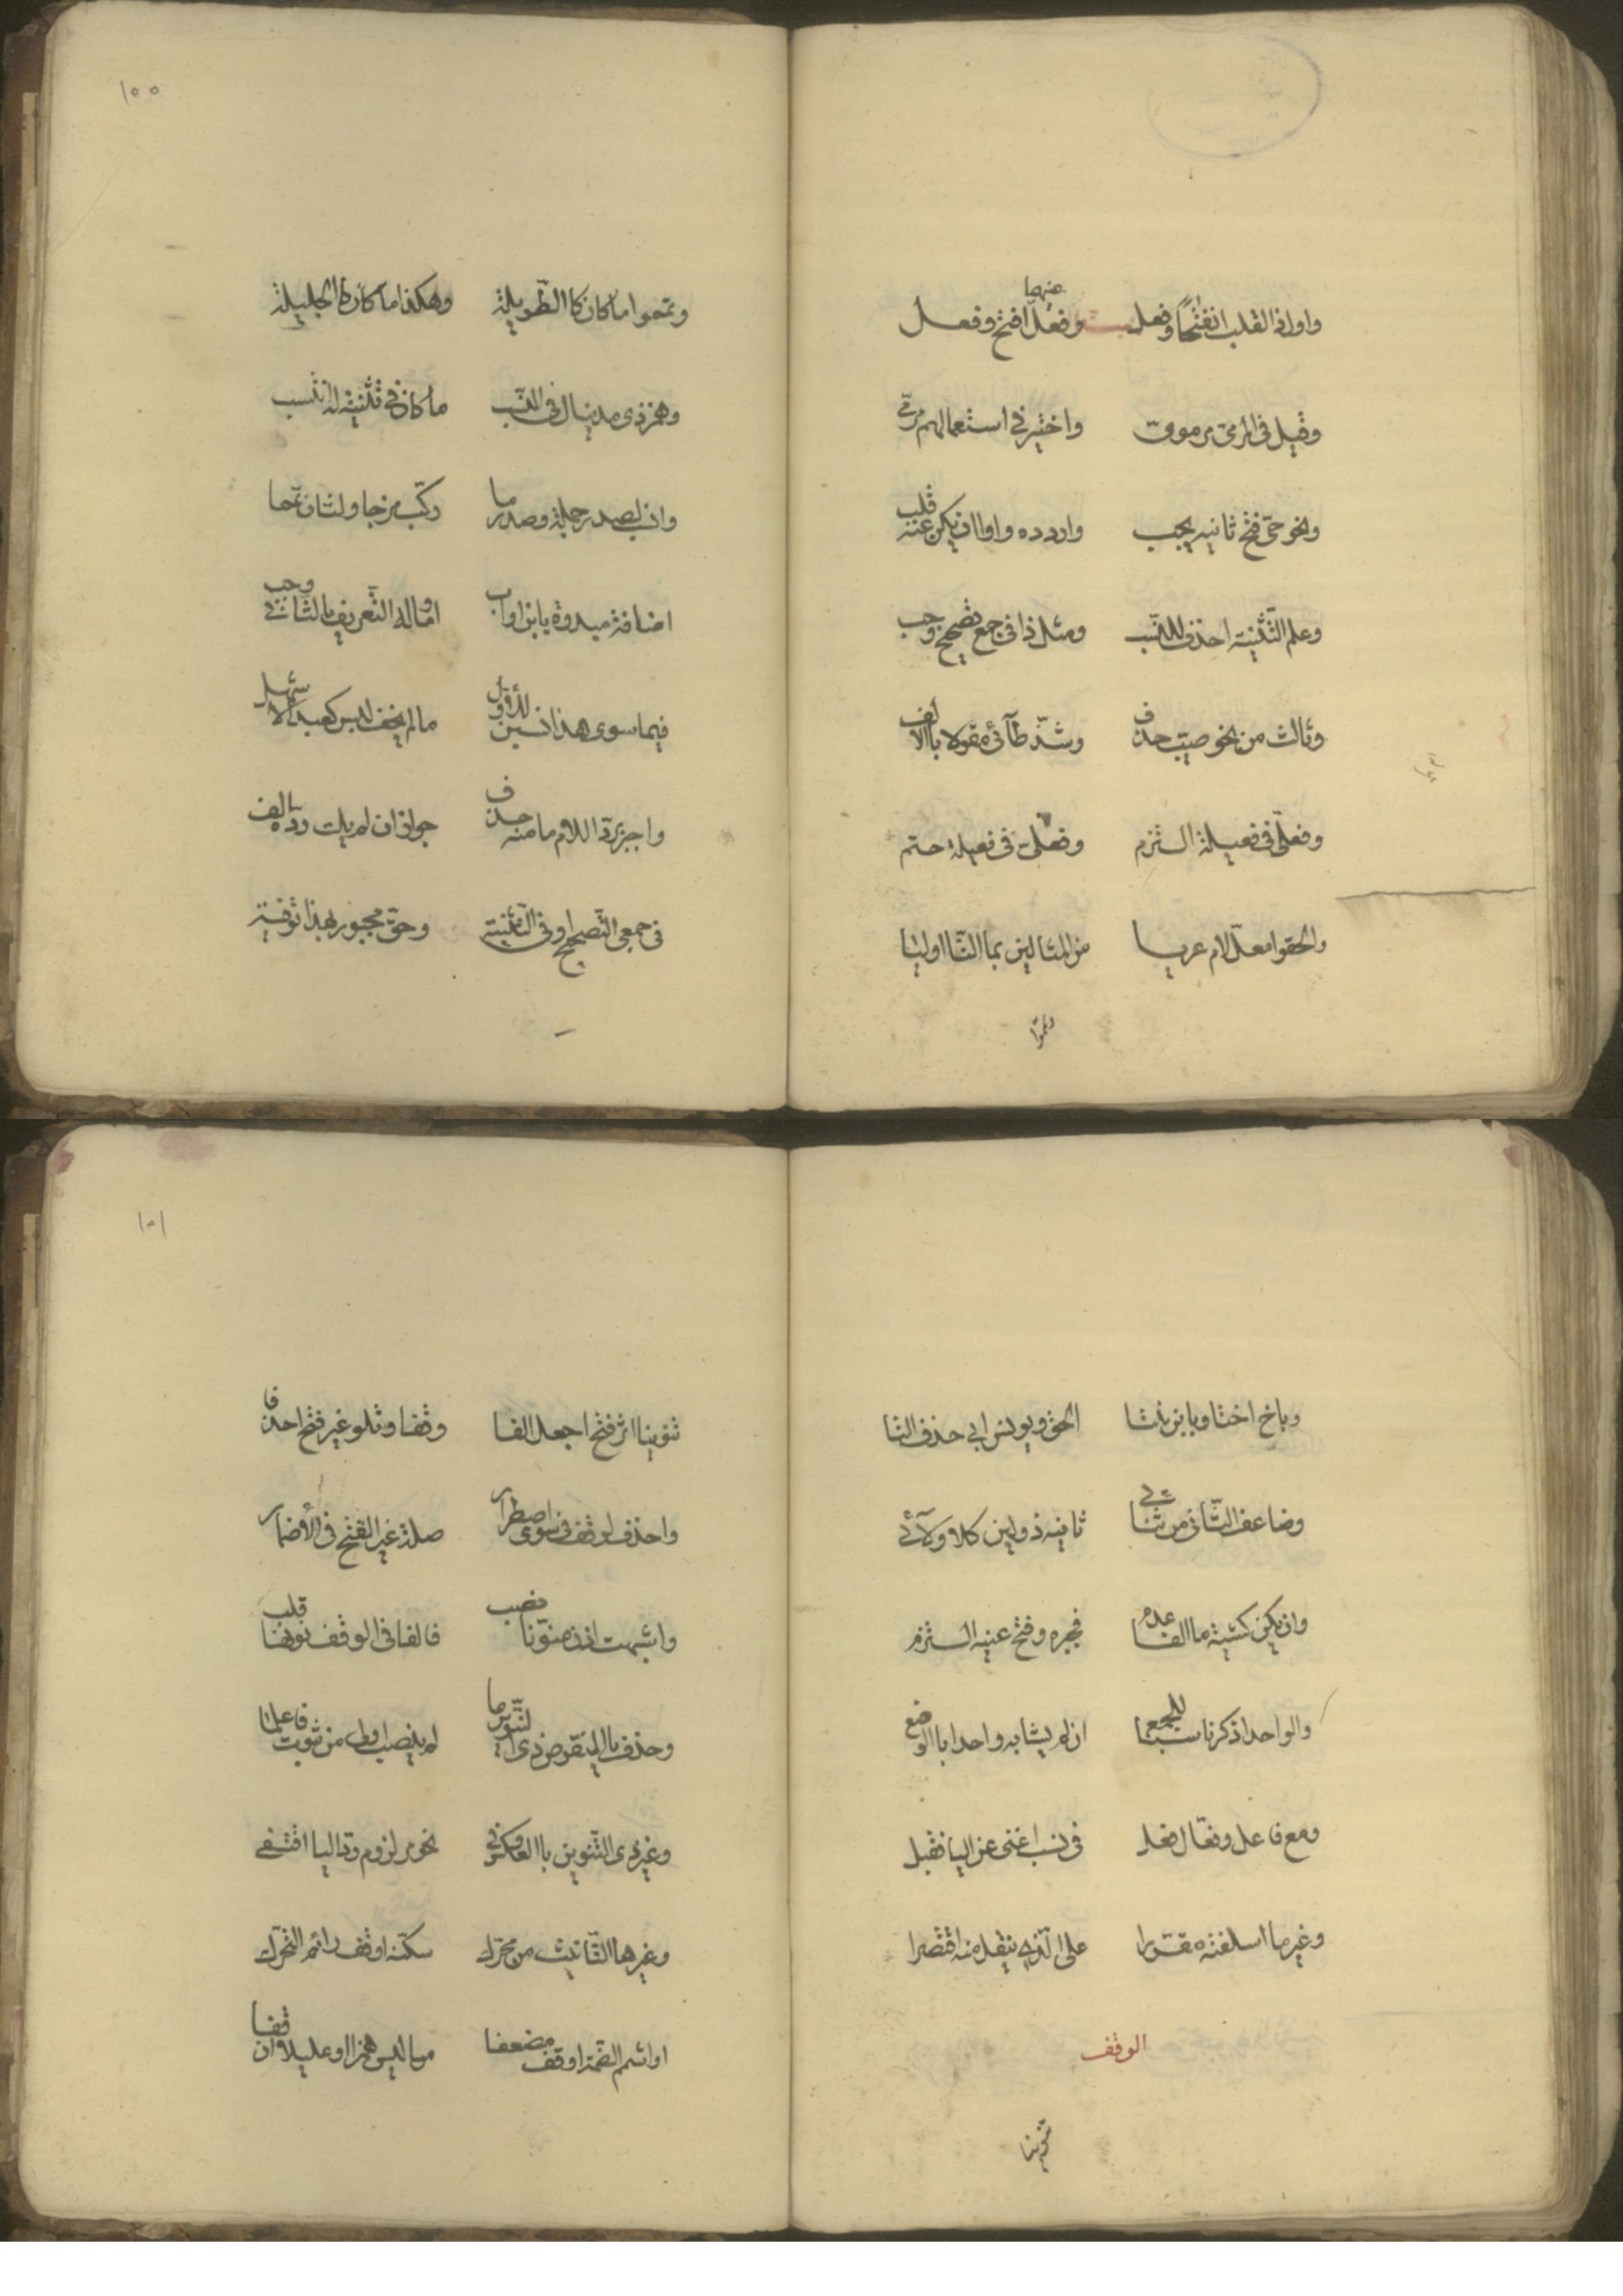 واول ذا القلب انفتاحا وفعل وفعل منهما افتح وفعل
وقيل فى المرمى مرموى واختير فى استعمالهم مرمى
ونحو حى فتح ثانيه يجب واردده واوا ان يكن عنه قلب
وعلم التثنية احذف للنسب ومثل ذا فى جمع تصحيح وجب
وثالث من نحو طيب حذف وشذ طائى مقولا بالالف
وفعلى فى فعيلة التزم وفعلى فى فعيلة حتم
والحقوا معل لام عريا من المثالين بما التا اوليا
وتمموا
١٥٥
وتمموا ما كان كالطويلة وهكذا ما كان كالجليلة
وهمز ذى مد ينال فى النسب ما كان فى تثنية له انتسب
وانسب لصدر جملة وصدر ما ركب مزجا ولثان تمما
اضافة مبدوة بابن او اب او ماله التعريف بالثانى وجب
فيما سوى هذا انسبن للاول ما لم يخف لبس كعبد الاشهل
واجبر برد اللام ما منه حذف جوازا ان لم يك رده الف
فى جمعى التصحيح او فى التثنية وحق مجبور بهذا توفية
وباخ اختا وبابن بنتا الحق ويونس ابى حذف التا
وضاعف الثانى من ثنائى ثانيه ذو لين كلا ولائى
وان يكن كشية ما الفا عدم فجبره وفتح عينه التزم
والواحد اذكر ناسبا للجمع ان لم يشابه واحدا بالوضع
ومع فاعل وفعال فعل فى نسب اغنى عن اليا فقبل
وغير ما اسلفته مقررا على الذى ينقل منه اقتصرا
الوقف
تنوينا
١٥١
تنوينا اثر فتح اجعل الفا وقفا وتلو غير فتح احذفا
واحذف لوقف فى سوى اضطرار صلة غير الفتح فى الأضمار
واشبهت اذن منونا نصب فالفا فى الوقف نونها قلب
وحذف يا المنقوص ذى التنوين ما لم ينصب اولى من ثبوت فاعلما
وغير ذى التنوين بالعكس وفى نحو مر لزوم رد اليا اقتفى
وغيرها التانيث من محرك سكنه اوقف رائم التحرك
او اشمم الضمة اوقف مضعفا ما ليس همزا او عليلا ان قفا